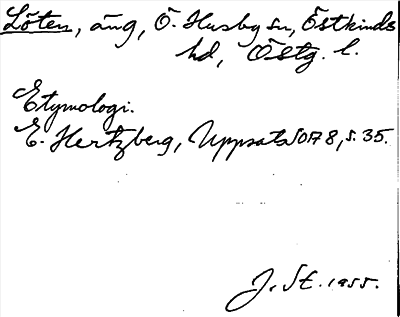 Löten, äng, Ö. Husby sn, Östkinds
hd, Östg. l.
Etymologi.
E. Hertzberg, Uppsats OA 8, s. 35.
J. St. 1955.